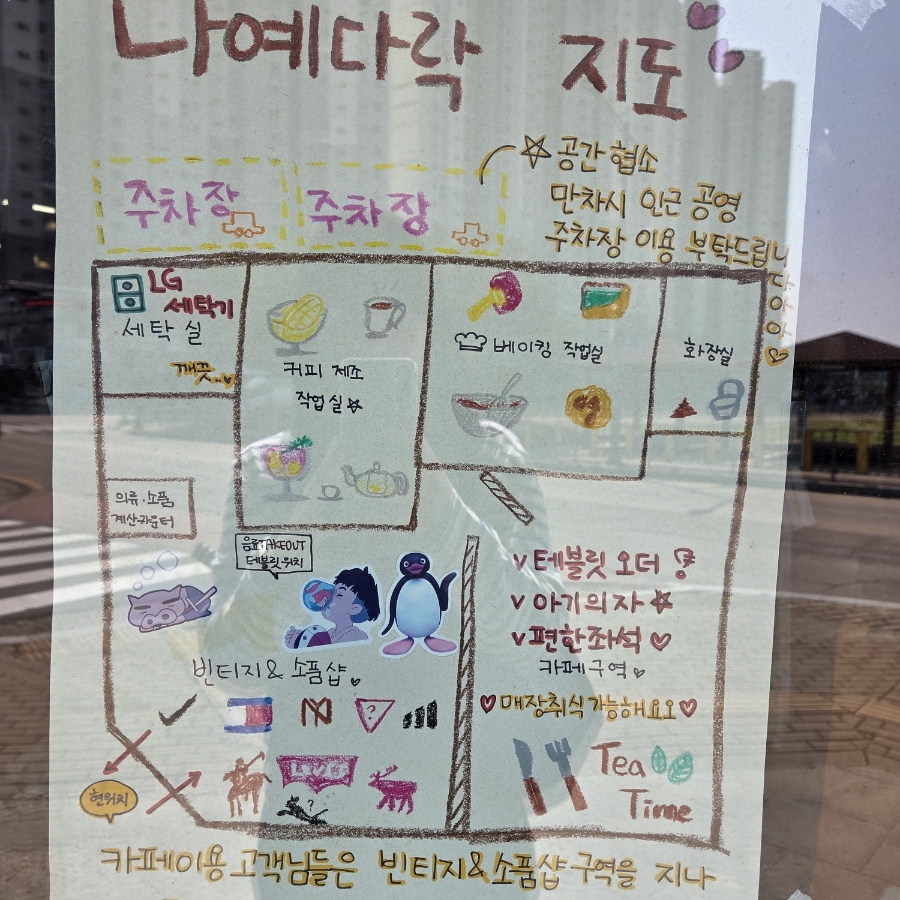 나예다락 지도
주차장 주차장
공간 협소
만차시 인근 공영
주차장 이용 부탁드립니다아아
LG
세탁기
세탁실
깨끗..
커피 제조
작업실
베이킹 작업실
화장실
의류·소품
계산카운터
음료TAKEOUT
테블릿위치
빈티지&소품샵
?
LEVI'S
?
현위치
v 테블릿 오더
v 아기의자
v 편한좌석
카페구역
매장취식가능해요오
Tea
Time
카페이용고객님들은 빈티지&소품샵 구역을 지나